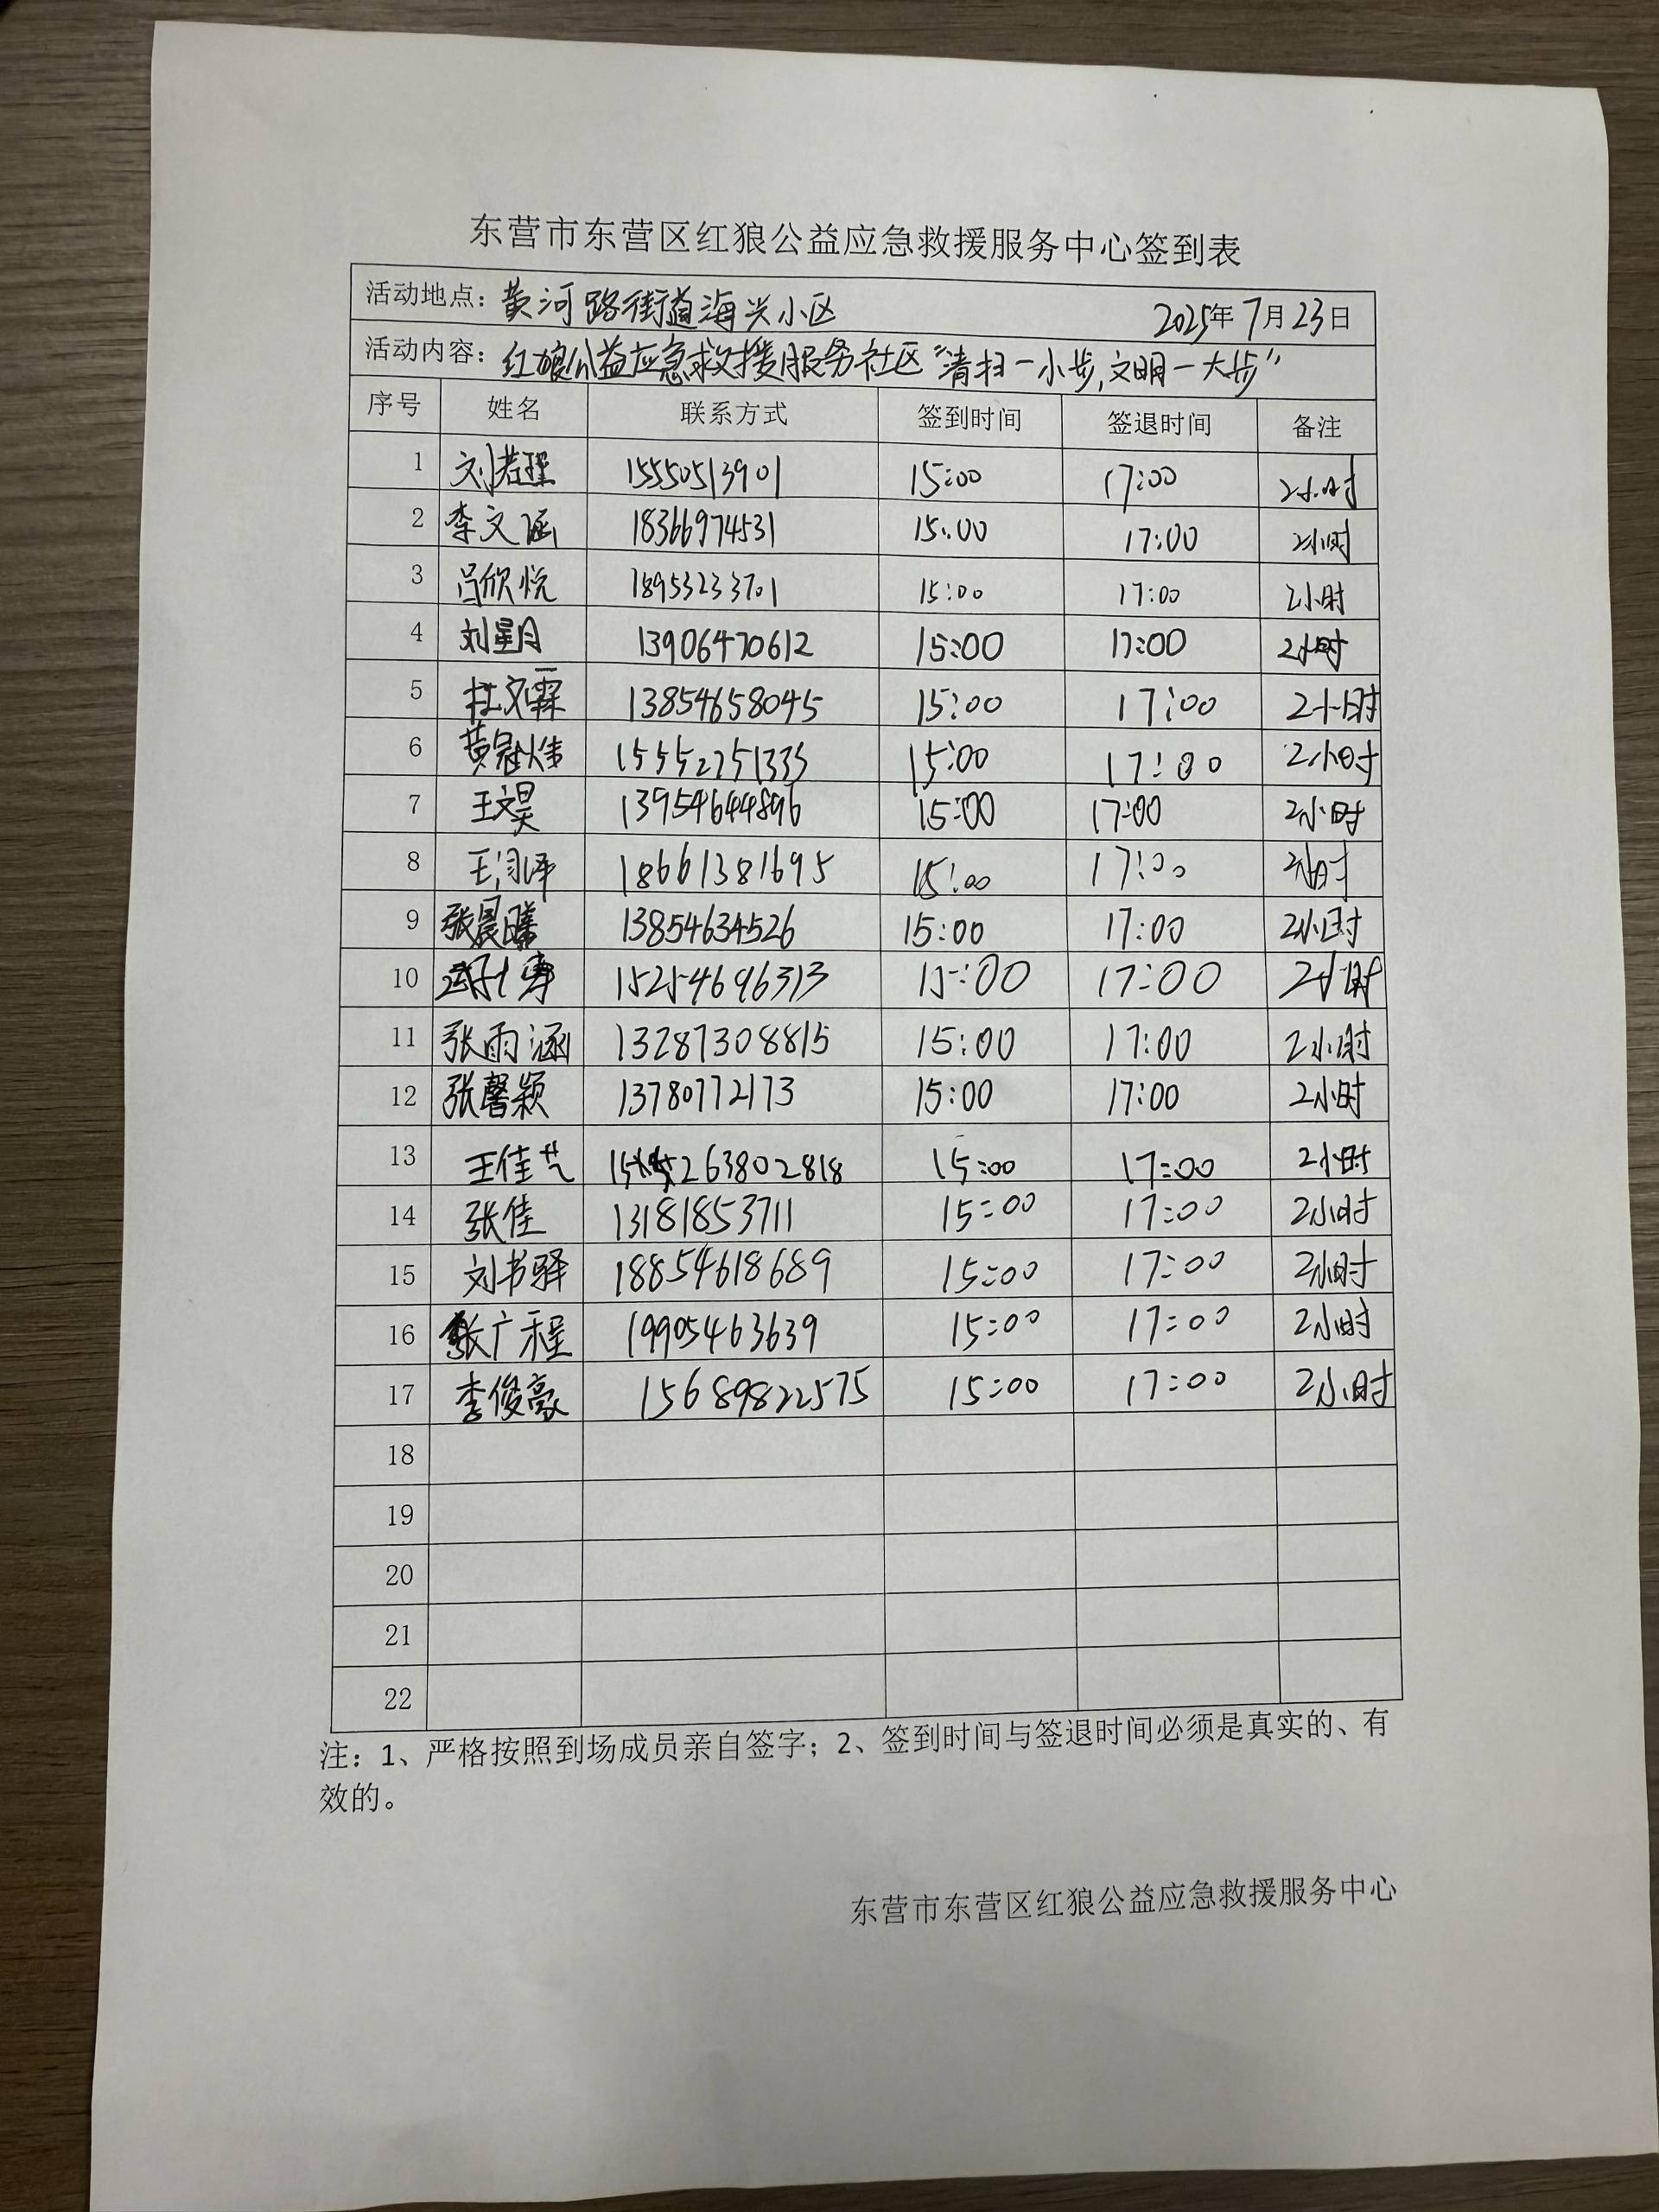 东营市东营区红狼公益应急救援服务中心签到表
活动地点：黄河路街道海兴小区 2025年7月23日
活动内容：红狼公益应急救援服务社区“清扫一小步,文明一大步”
序号 姓名 联系方式 签到时间 签退时间 备注
1 刘若瑾 15550513901 15:00 17:00 2小时
2 李文涵 18366974531 15:00 17:00 2小时
3 吕欣悦 18953233701 15:00 17:00 2小时
4 刘星月 13906470612 15:00 17:00 2小时
5 杜文霖 13854658045 15:00 17:00 2小时
6 黄冠炜 15552751333 15:00 17:00 2小时
7 王文昊 13954644896 15:00 17:00 2小时
8 王润泽 18661381695 15:00 17:00 2小时
9 张晨曦 13854634526 15:00 17:00 2小时
10 15254696313 15:00 17:00 2小时
11 张雨涵 13287308815 15:00 17:00 2小时
12 张馨颖 13780772173 15:00 17:00 2小时
13 王佳艺 15:00 17:00 2小时
14 张佳 13181853711 15:00 17:00 2小时
15 刘书驿 18854618689 15:00 17:00 2小时
16 张广程 19905463639 15:00 17:00 2小时
17 李俊豪 15689822575 15:00 17:00 2小时
18
19
20
21
22
注：1、严格按照到场成员亲自签字；2、签到时间与签退时间必须是真实的、有
效的。
东营市东营区红狼公益应急救援服务中心